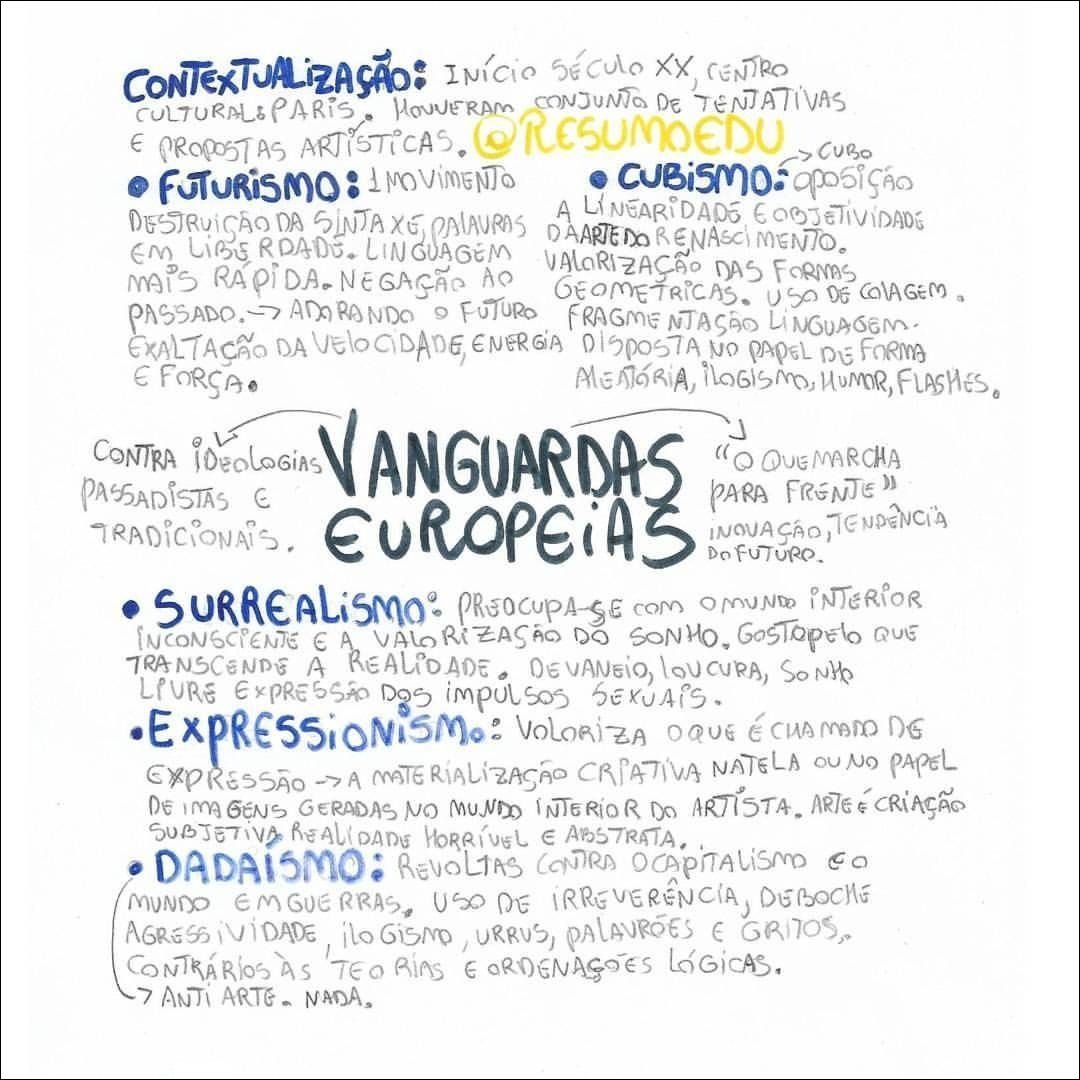 CONTEXTUALIZAÇÃO: INÍCIO SÉCULO XX, CENTRO
CULTURAL: PARIS. HOUVERAM CONJUNTO DE TENTATIVAS
E PROPOSTAS ARTÍSTICAS. @RESUMOEDU
• FUTURISMO: 1 MOVIMENTO
DESTRUIÇÃO DA SINTAXE, PALAVRAS
EM LIBERDADE. LINGUAGEM
MAIS RÁPIDA. NEGAÇÃO AO
PASSADO. → ADORANDO O FUTURO
EXALTAÇÃO DA VELOCIDADE, ENERGIA
E FORÇA.
→ CUBO
• CUBISMO: OPOSIÇÃO
A LINEARIDADE E OBJETIVIDADE
DA ARTE DO RENASCIMENTO.
VALORIZAÇÃO DAS FORMAS
GEOMETRICAS. USO DE COLAGEM.
FRAGMENTAÇÃO LINGUAGEM.
DISPOSTA NO PAPEL DE FORMA
ALEATÓRIA, ILOGISMO, HUMOR, FLASHES.
CONTRA IDEOLOGIAS
PASSADISTAS E
TRADICIONAIS.
VANGUARDAS
EUROPEIAS
"O QUE MARCHA
PARA FRENTE"
INOVAÇÃO, TENDÊNCIA
DO FUTURO.
• SURREALISMO: PREOCUPA-SE COM O MUNDO INTERIOR
INCONSCIENTE E A VALORIZAÇÃO DO SONHO. GOSTO PELO QUE
TRANSCENDE A REALIDADE. DEVANEIO, LOUCURA, SONHO
LIVRE EXPRESSÃO DOS IMPULSOS SEXUAIS.
• EXPRESSIONISMO: VOLORIZA O QUE É CHAMADO DE
EXPRESSÃO → A MATERIALIZAÇÃO CRIATIVA NA TELA OU NO PAPEL
DE IMAGENS GERADAS NO MUNDO INTERIOR DO ARTISTA. ARTE É CRIAÇÃO
SUBJETIVA. REALIDADE HORRÍVEL E ABSTRATA.
• DADAÍSMO: REVOLTAS CONTRA O CAPITALISMO E O
MUNDO EM GUERRAS. USO DE IRREVERÊNCIA, DEBOCHE
AGRESSIVIDADE, ILOGISMO, URRUS, PALAVRÕES E GRITOS.
CONTRÁRIOS ÀS TEORIAS E ORDENAÇÕES LÓGICAS.
→ ANTI ARTE. NADA.